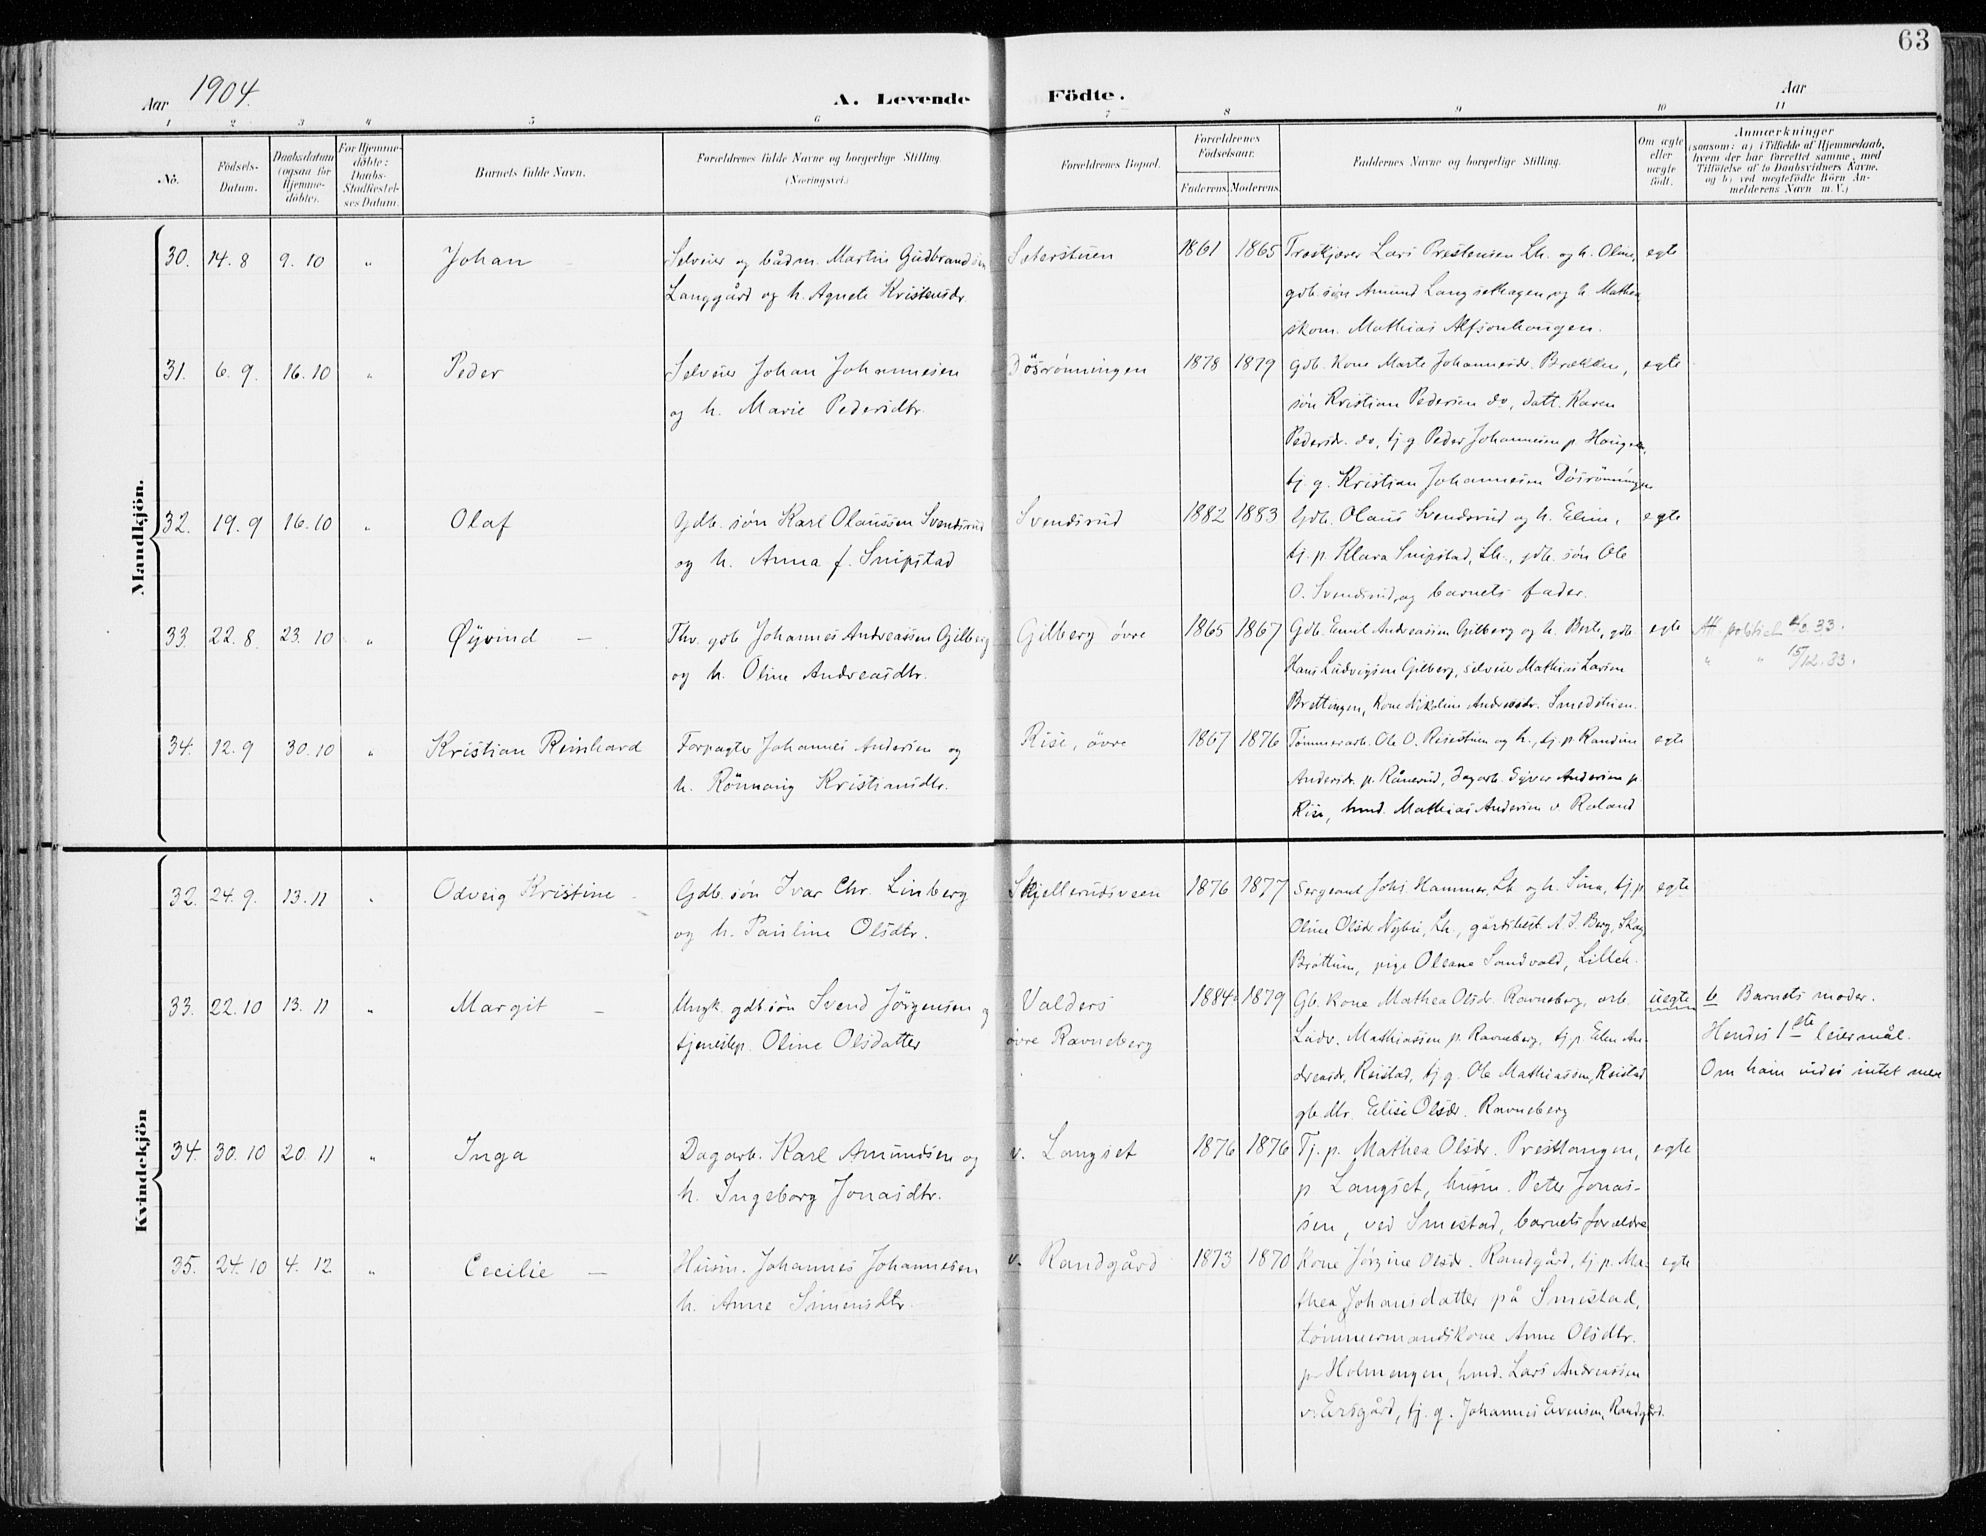 63
Aar 1904.
A. Levende Födte.
Aar
1 2 3 4 5 6 7 8 9 10 11
No.
Födsels-Datum.
Daabsdatum (ogsaa for Hjemme-döbte).
For Hjemme-döbte: Daabs-Stadfæstelses Datum.
Barnets fulde Navn.
Forældrenes fulde Navne og borgerlige Stilling.
(Næringsvei.)
Forældrenes Bopæl.
Forældrenes Födselsaar.
Faderens. Moderens.
Faddernes Navne og borgerlige Stilling.
Om ægte eller uægte födt.
Anmærkninger
(saasom: a) i Tilfælde af Hjemmedaab, hvem der har forrettet samme, med Tilföielse af to Daabsvidners Navne, og b) ved uægtefödte Börn Anmelderens Navn m. V.)
Mandkjön.
30. 14.8 9.10 " Johan
Selveier og bådm. Martin Gudbrandsen
Langgård og h. Agnete Kristensdr.
Sæterstuen 1861 1865
Træskjærer Lars Prestensen Lh. og h. Oline,
gdb. søn Amund Langsethagen og h. Mathea
skom. Mathias Alfsonhaugen.
egte
31. 6.9. 16.10 " Peder
Selveier Johan Johannesen
og h. Marie Pedersdtr.
Døsrønningen 1878 1879
Gdb. Kone Marte Johannesdr. Brækken,
søn Kristian Pedersen do, datt. Karen
Pedersdr. do, tj. g. Peder Johannesen p. Haugen,
tj. g. Kristian Johannesen Døsrønningen
egte
32. 19.9 16.10 " Olaf
Gdb. søn Karl Olaussen Svendsrud
og h. Anna f. Snipstad
Svendsrud 1882 1883
Gdb. Olaus Svendsrud og h. Eline,
tj. p. Klara Snipstad, Lh., gdb. søn Ole
O. Svendsrud og barnets fader.
egte
33 22.8. 23.10 " Øyvind
Fhv. gdb Johannes Andreassen Gilberg
og h. Oline Andreasdtr.
Gilberg øvre 1865 1867
Gdb. Emil Andreassen Gilberg og h. Berte, gdb.
Hans Ludvigsen Gilberg, selveier Mathias Larsen
Brettingen, Kone Nikoline Andreasdr. Smedstuen.
egte
33.
" " 15/12.33.
34. 12.9 30.10 " Kristian Reinhard
Forpagter Johannes Andersen og
h. Rönnaug Kristiansdtr.
Rise, øvre 1867 1876
Tømmerarb. Ole O. Risestuen og h., tj. p. Randine
Andersdr. p. Rånerud, Dagarb. Syver Andersen p.
Rise, husmd. Mathias Andersen v Roland
egte
Kvindekjön
32. 24.9. 13.11 " Odveig Kristine
Gdb. søn Ivar Chr. Linberg
og h. Pauline Olsdtr.
Skjellerudsveen 1876 1877
Sergeant Johs Hammer, Lh. og h. Sina, tj. p.
Oline Olsdr Nybu, Lh., gårdsbest. A. J. Berg,
Brøttum, pige Oleane Sandvold, Lilleh.
egte
33. 22.10 13.11 " Margit
Ungk. gdb. søn Svend Jørgensen og
tjenestep. Oline Olsdatter
Valders
øvre Ravneberg
1884 1879
Gb. kone Mathea Olsdr. Ravneberg, arb.
Ludv. Mathiassen p. Ravneberg, tj. p. Elen An-
dreasdr, Reistad, tj g. Ole Mathiassen, Reistad
gb. dtr. Elise Olsdr. Ravneberg
uegte
b Barnets moder.
Hendes 1ste leiermål.
Om ham vides intet mere
34. 30.10 20.11 " Inga
Dagarb. Karl Amundsen og
h. Ingeborg Jonasdtr.
v. Langset 1876 1876
Tj. p. Mathea Olsdr. Prestlangen,
p Langset, husm. Peter Jonas-
sen, ved Smestad, barnets forældre
egte
35. 24.10 4.12 " Cecilie
Husm. Johannes Johannesen
h. Anne Simensdtr.
v. Randgård 1873 1870
Kone Jørgine Olsdr. Randgård, tj. p. Ma-
thea Johansdatter på Smestad,
tømmermandskone Anne Olsdtr.
p Holmengen, hmd. Lars Andreassen
v. Ersgård, tj. g. Johannes Evensen, Randgård.
egte